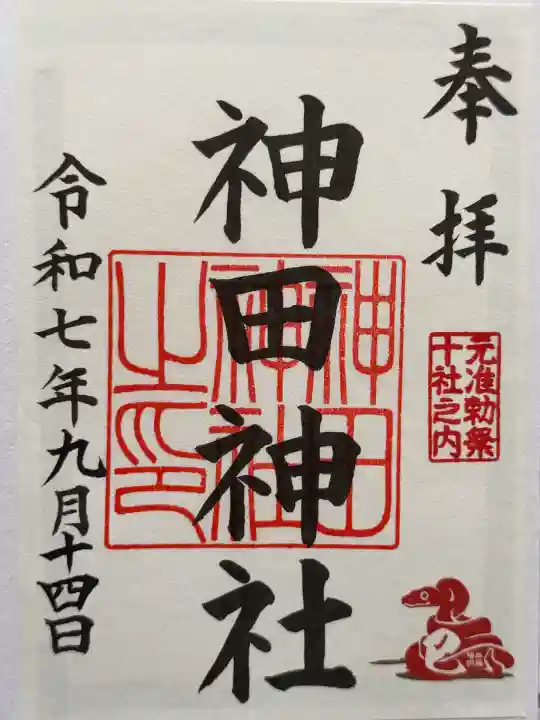 奉拝
元准勅祭
十社之内
神田神社
神田
神社
之印
令和七年九月十四日